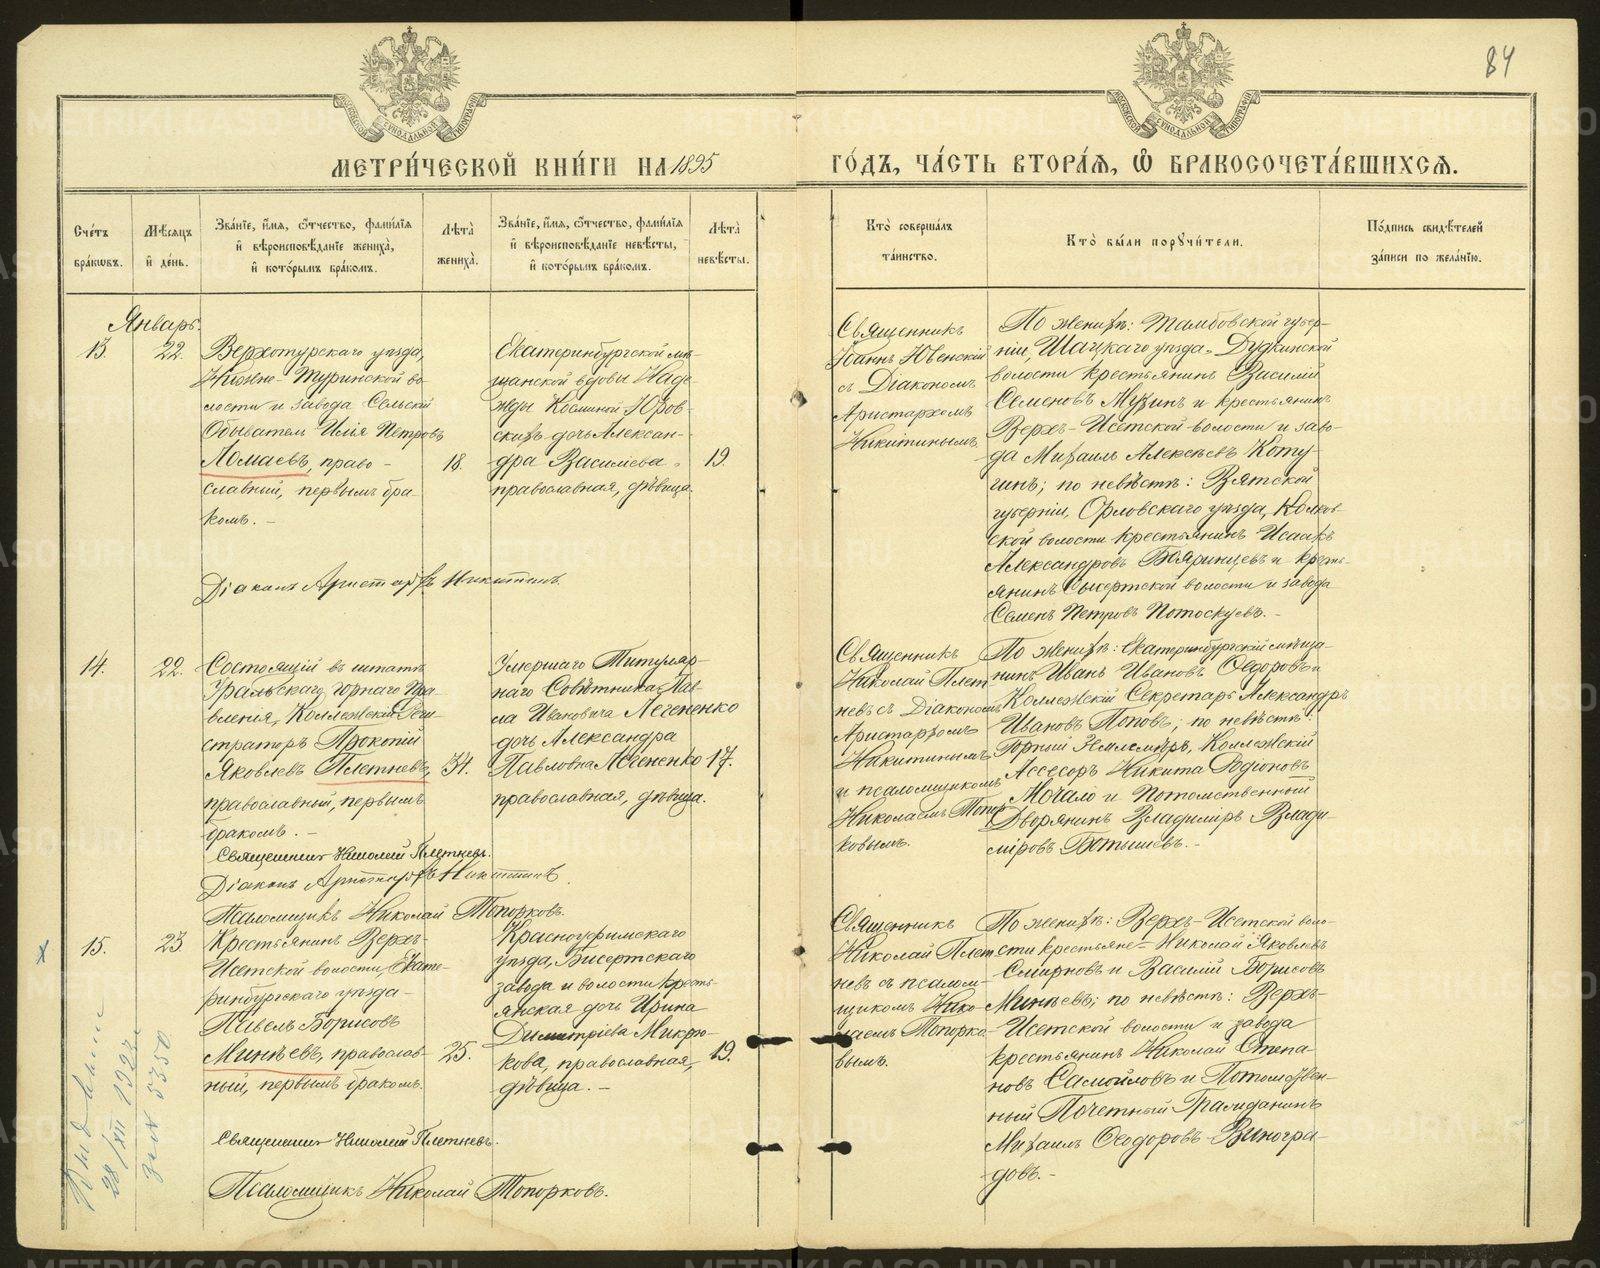 84
МОСКОВСКОЙ СѴНОДАЛЬНОЙ ТИПОГРАФІИ
МОСКОВСКОЙ СѴНОДАЛЬНОЙ ТИПОГРАФІИ
МЕТРИ́ЧЕСКОЙ КНИ́ГИ НА 1895 ГО́ДЪ, ЧА́СТЬ ВТОРА́Ѧ, Ѡ҆ БРАКОСОЧЕТА́ВШИХСѦ.
Сче́тъ
бра́кѡвъ.
Мѣ́сѧцъ
и҆ де́нь.
Зва́нїе, и҆́мѧ, ѻ҆́тчество, фами́лїѧ
и҆ вѣроисповѣ́данїе жениха̀,
и҆ кото́рымъ бра́комъ.
Лѣ́та̀
жениха̀.
Зва́нїе, и҆́мѧ, ѻ҆́тчество, фами́лїѧ
и҆ вѣроисповѣ́данїе невѣ́сты,
и҆ кото́рымъ бра́комъ.
Лѣ́та̀
невѣ́сты.
Кто̀ соверша́лъ
та́инство.
Кто̀ бы́ли порꙋчи́тели.
По́дпись свидѣ́телей
за́писи по жела́нїю.
Январь.
13. 22.
Верхотурскаго уѣзда,
Нижне-Туринской во-
лости и завода Сельскій
Обыватель Илія Петровъ
Ломаевъ, право-
славный, первымъ бра-
комъ. -
18.
Екатеринбургской мѣ-
щанской вдовы Наде-
жды Косминой Юров-
скихъ дочь Алексан-
дра Васильева -
православная, дѣвица.
19.
Священникъ
Іоаннъ Ювенскій
съ Діакономъ
Аристархомъ
Никитинымъ
По женихѣ: Тамбовской губер-
ніи, Шацкаго уѣзда - Дудкинской
волости крестьянинъ Василій
Семеновъ Музинъ и крестьянинъ
Верхъ-Исетской волости и заво-
да Михаилъ Алексѣевъ Коту-
гинъ; по невѣстѣ: Вятской
губерніи, Орловскаго уѣзда,
ской волости крестьянинъ Исаакъ
Александровъ Бояринцевъ и кресть-
янинъ Сысертской волости и завода
Семенъ Петровъ Потоскуевъ. -
Діаконъ Аристархъ Никитинъ
14. 22.
Состоящій въ штатѣ
Уральскаго Горнаго Пра-
вленія, Коллежскій Реги-
страторъ Прокопій
Яковлевъ Плетневъ,
православный, первымъ
бракомъ. -
34.
Умершаго Титуляр-
наго Совѣтника Пав-
ла Ивановича Легененко
дочь Александра
Павловна Легененко
православная, дѣвица.
17.
Священникъ
Николай Плет-
невъ съ Діакономъ
Аристархомъ
Никитинымъ
и псаломщикомъ
Николаемъ Топор-
ковымъ.
По женихѣ: Екатеринбургскій мѣща-
нинъ Иванъ Ивановъ Ѳедоровъ и
Коллежскій Секретарь Александръ
Ивановъ Поповъ; по невѣстѣ:
Горный Землемѣръ, Коллежскій
Ассесоръ Никита Родіоновъ
Мочало и Потомственный
Дворянинъ Владиміръ Влади-
міровъ Ботышевъ. -
Священникъ Николай Плетневъ.
Діаконъ Аристархъ Никитинъ
Псаломщикъ Николай Топорковъ.
х 15. 23
Крестьянинъ Верхъ-
Исетской волости, Екате-
ринбургскаго уѣзда -
Павелъ Борисовъ
Минѣевъ, православ-
ный, первымъ бракомъ.
25.
Красноуфимскаго
уѣзда, Бисертскаго
завода и волости кресть-
янская дочь Ирина
Димитріева Микрю-
кова, православная,
дѣвица. -
19.
Священникъ
Николай Плет-
невъ съ псалом-
щикомъ Нико-
лаемъ Топорко-
вымъ.
По женихѣ: Верхъ-Исетской воло-
сти крестьяне - Николай Яковлевъ
Смирновъ и Василій Борисовъ
Минѣевъ; по невѣстѣ: Верхъ-
Исетской волости и завода
крестьянинъ Николай Степа-
новъ Самойловъ и Потомствен-
ный Почетный Гражданинъ
Михаилъ Ѳеодоровъ Виногра-
довъ. -
28/XII 1922 г.
5350
Священникъ Николай Плетневъ.
Псаломщикъ Николай Топорковъ.
METRIKI.GASO-URAL.RU